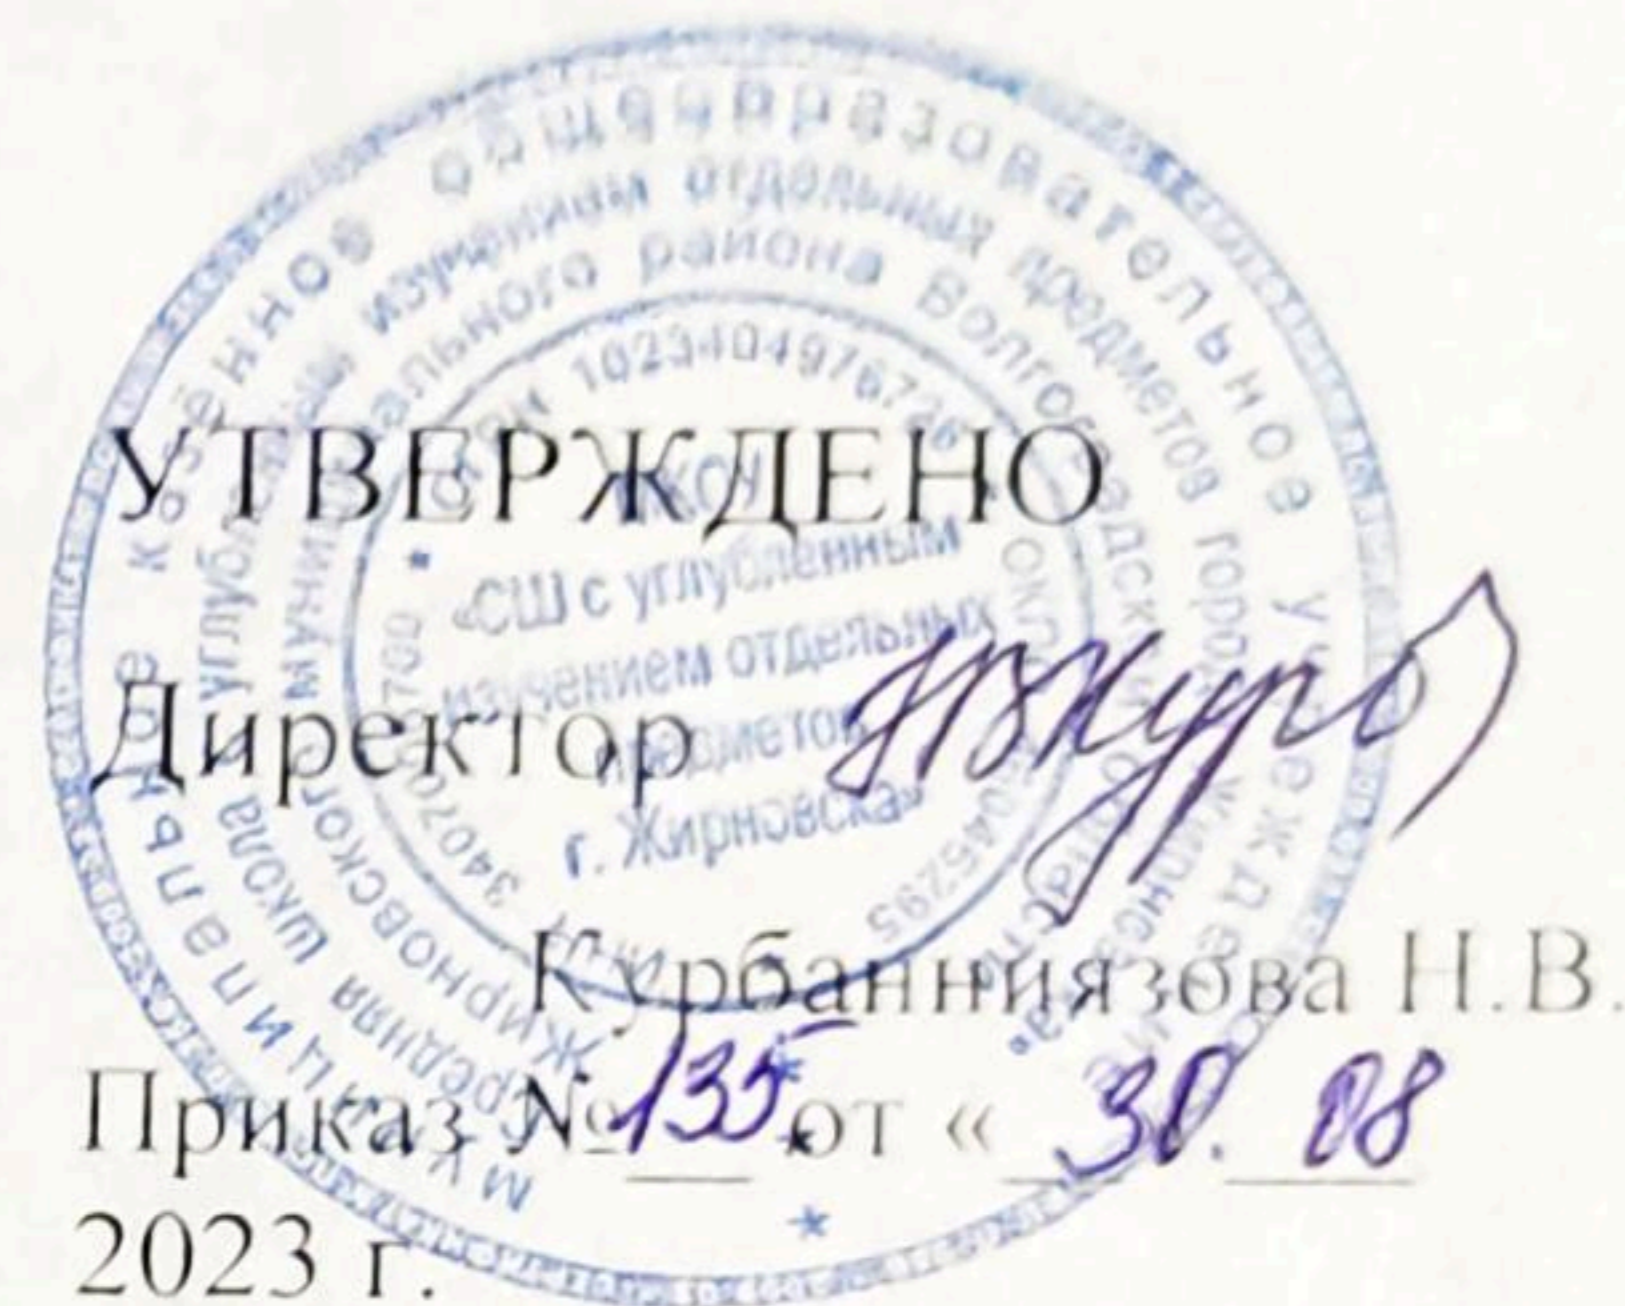 УТВЕРЖДЕНО
Директор
Курбанниязова Н.В.
Приказ № 135 от « 30. 08
2023 г.
муниципальное казённое общеобразовательное учреждение
средняя школа с углубленным изучением отдельных предметов города Жирновска»
Жирновского муниципального района Волгоградской области
ОГРН 1023404976726
ИНН
МКОУ
«СШ с углубленным
изучением отдельных
предметов
г. Жирновска»